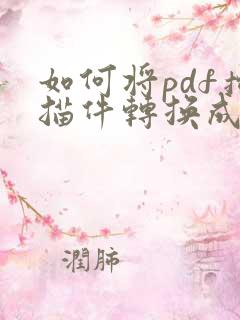 如何将pdf扫
描件轉換成
潤肺